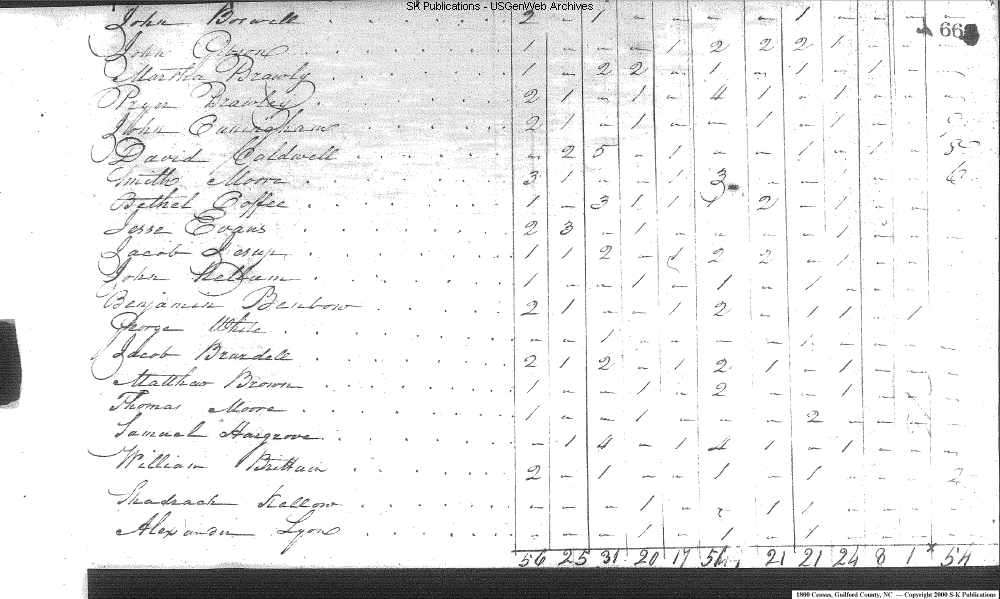 SK Publications - USGenWeb Archives
662
John Boswell 2 - 1 - - - - 1 - - - -
John 1 - - - 1 2 2 2 1 - - -
Martha Brawly 1 - 2 2 - 1 - 1 - 1 - -
Pryor Brawley 2 1 - 1 - 4 1 - 1 - - -
John Cuningham 2 1 - 1 - - 1 - 1 - -
David Caldwell - 2 5 - 1 - - 1 - 1 -
Smith Moore 3 1 - - 1 3 - - 1 - - 6
Bethel Coffee 1 - 3 1 1 1 2 - 1 - - -
Jesse Evans 2 3 - 1 - - - - 1 - - -
Jacob Jesup 1 1 2 - 1 2 2 - 1 - - -
John Kellum 1 - - 1 - 1 - 1 - - - -
Benjamin Benbow 2 1 - - 1 2 - 1 1 - 1
George White - - 1 - - - - 1 - - - -
Jacob Brundell 2 1 2 - 1 2 1 - 1 - - -
Matthew Brown 1 - - 1 - 2 - - 1 - -
Thomas Moore 1 - - 1 - - - 2 - - -
Samuel Hargrove - 1 4 - 1 4 1 - 1 - - -
William Brittain 2 - 1 - - 1 - 1 - - - 2
Shadrach Kellow - - - 1 - 1 1 - - -
Alexander Lyon - - - 1 - 1 - 1 - - - -
56 25 31 20 17 56 21 21 24 8 1 54
1800 Census, Guilford County, NC — Copyright 2000 S-K Publications